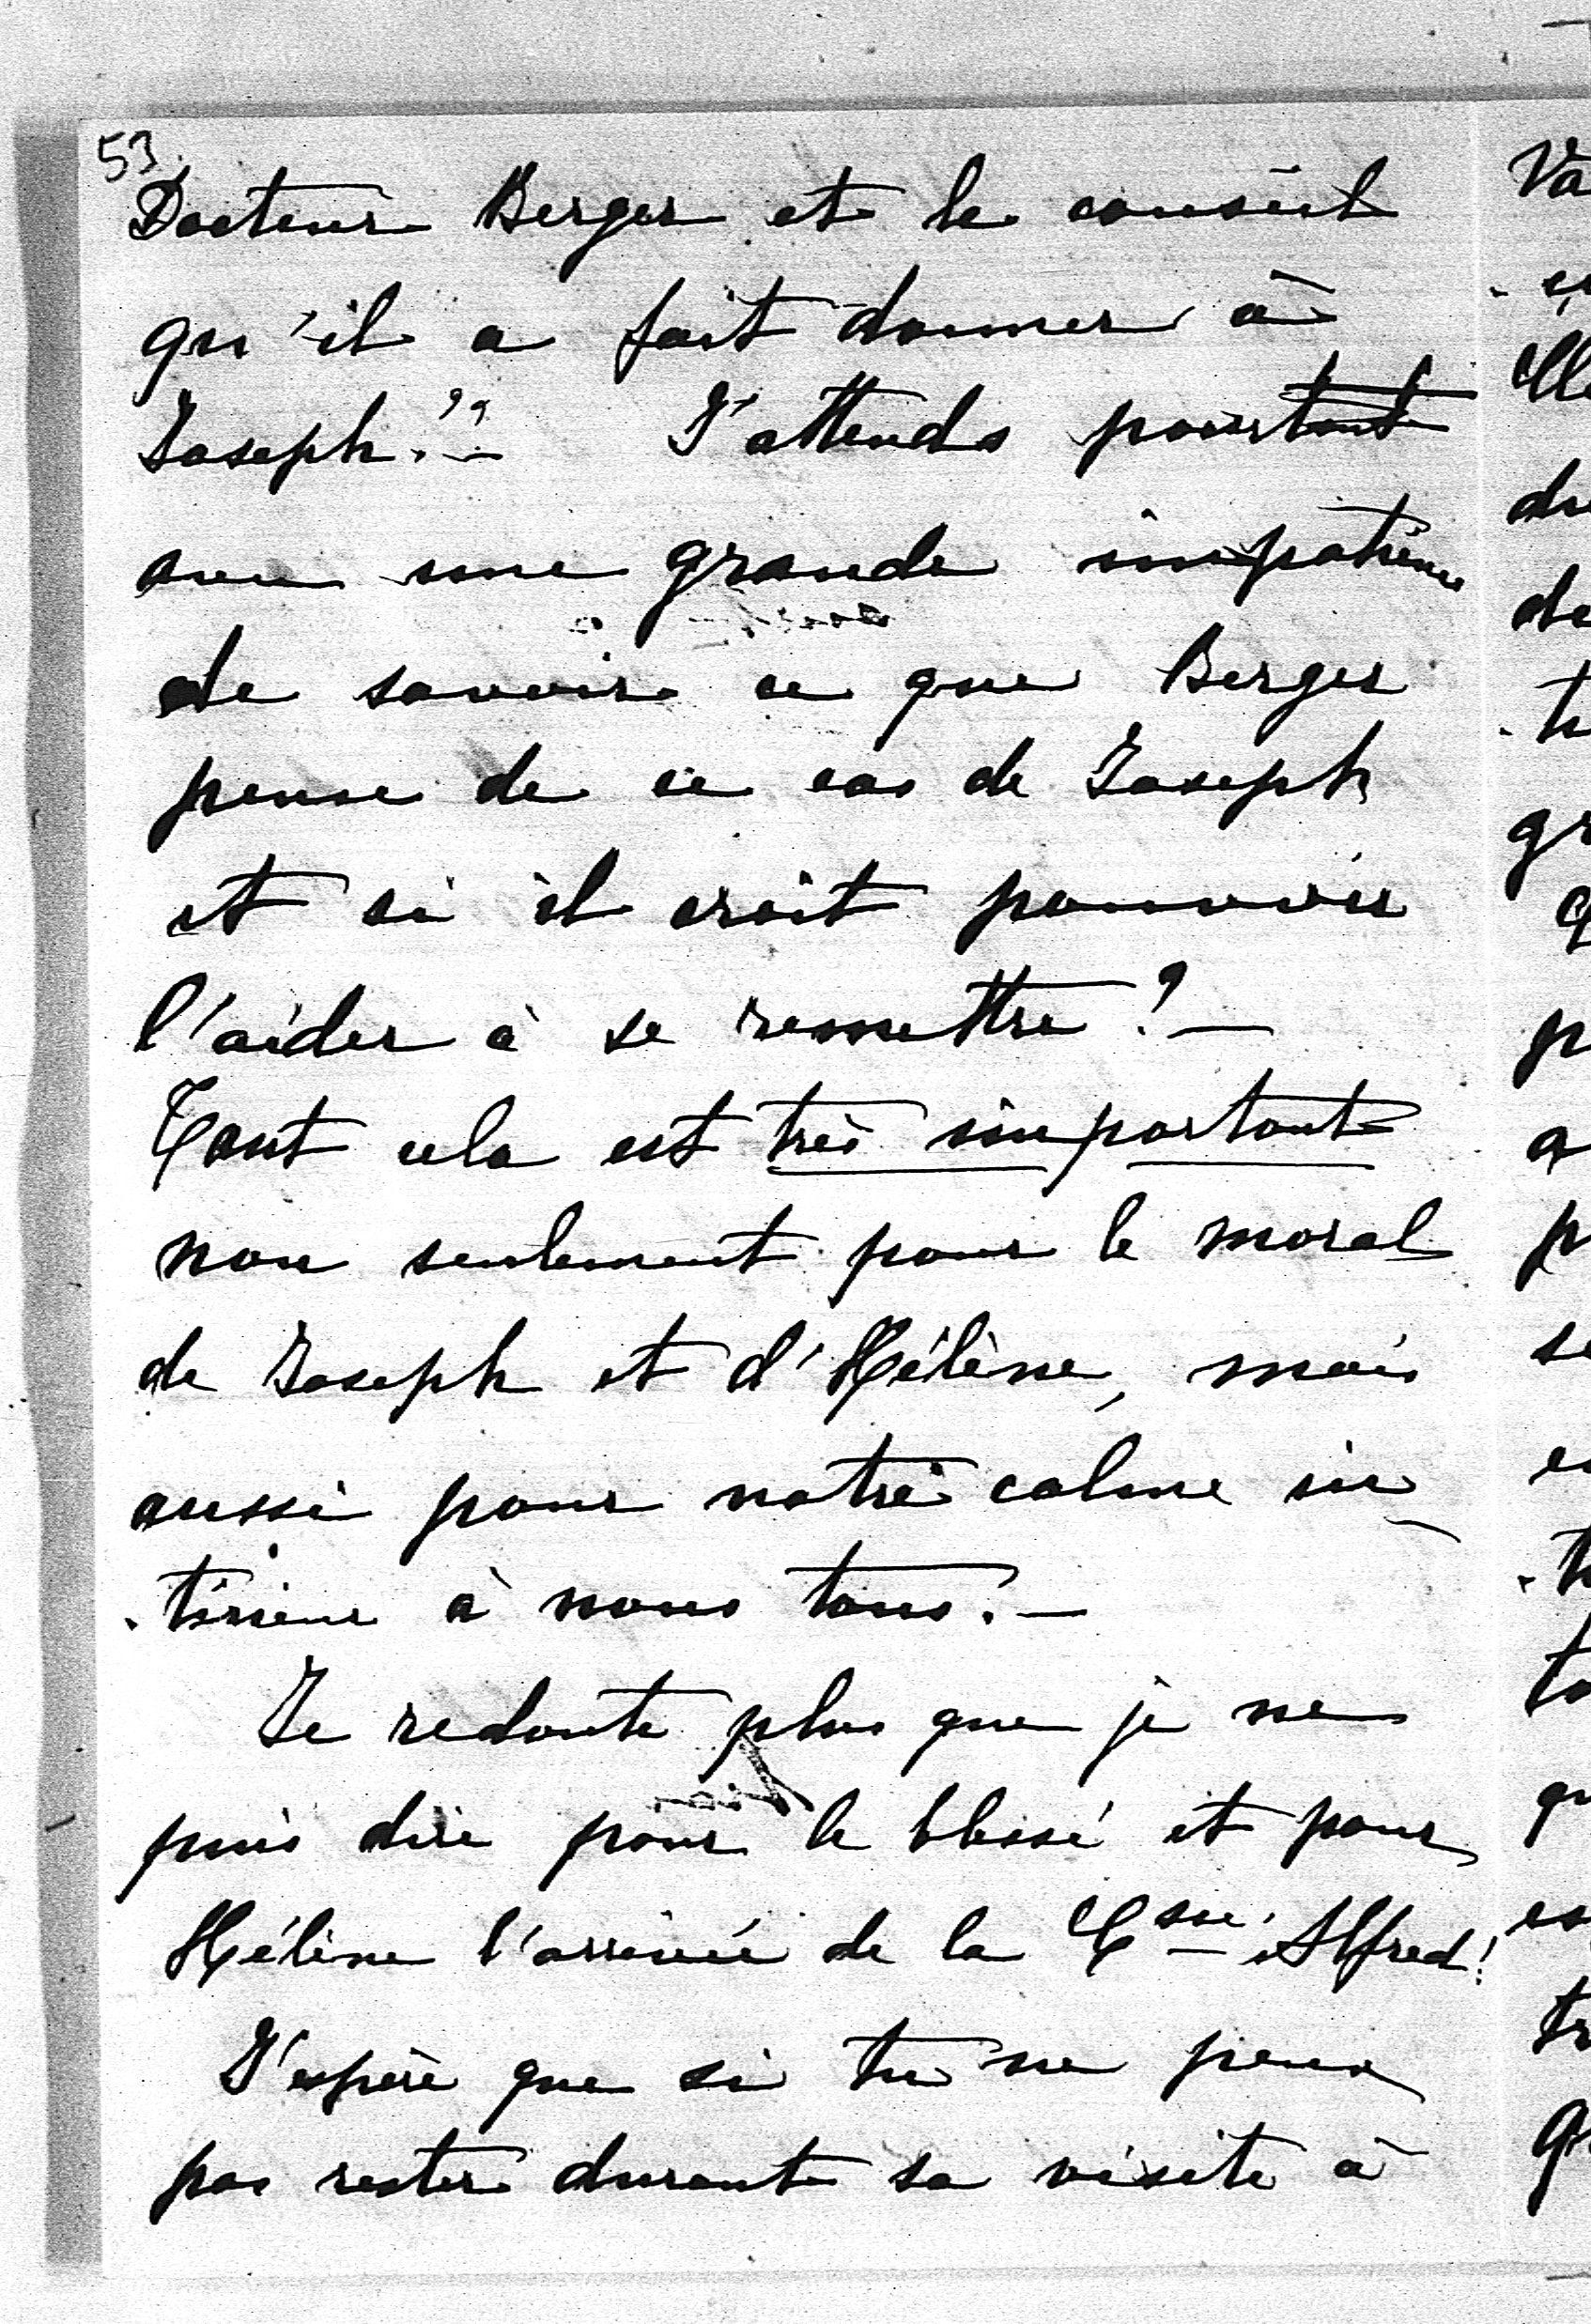 53.
Docteur Berger et le conseil
qu'il a fait donner à
Joseph?? — J'attends pourtant
avec une grande impatience
de savoir ce que Berger
pense de ce cas de Joseph
et si il croit pouvoir
l'aider à se remettre? —
Tout cela est très important
non seulement pour le moral
de Joseph et d'Hélène, mais
aussi pour notre calme in-
-térieur à nous tous. —
Je redoute plus que je ne
puis dire pour le blessé et pour
Hélène l'arrivée de la Csse Alfred!
J'espère que si tu ne peux
pas rester durant sa visite à